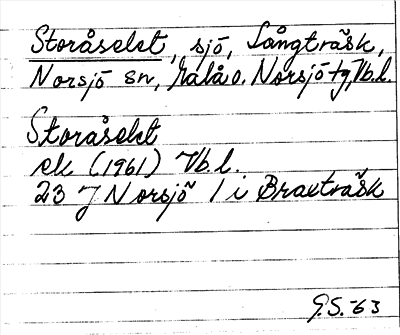 Storåselet, sjö, Långträsk,
Norsjö sn, Malå o. Norsjö tg, Vb.l.
Storåselet
ek (1961) Vb.l.
23 J Norsjö 1 i Braxträsk
G.S. -63